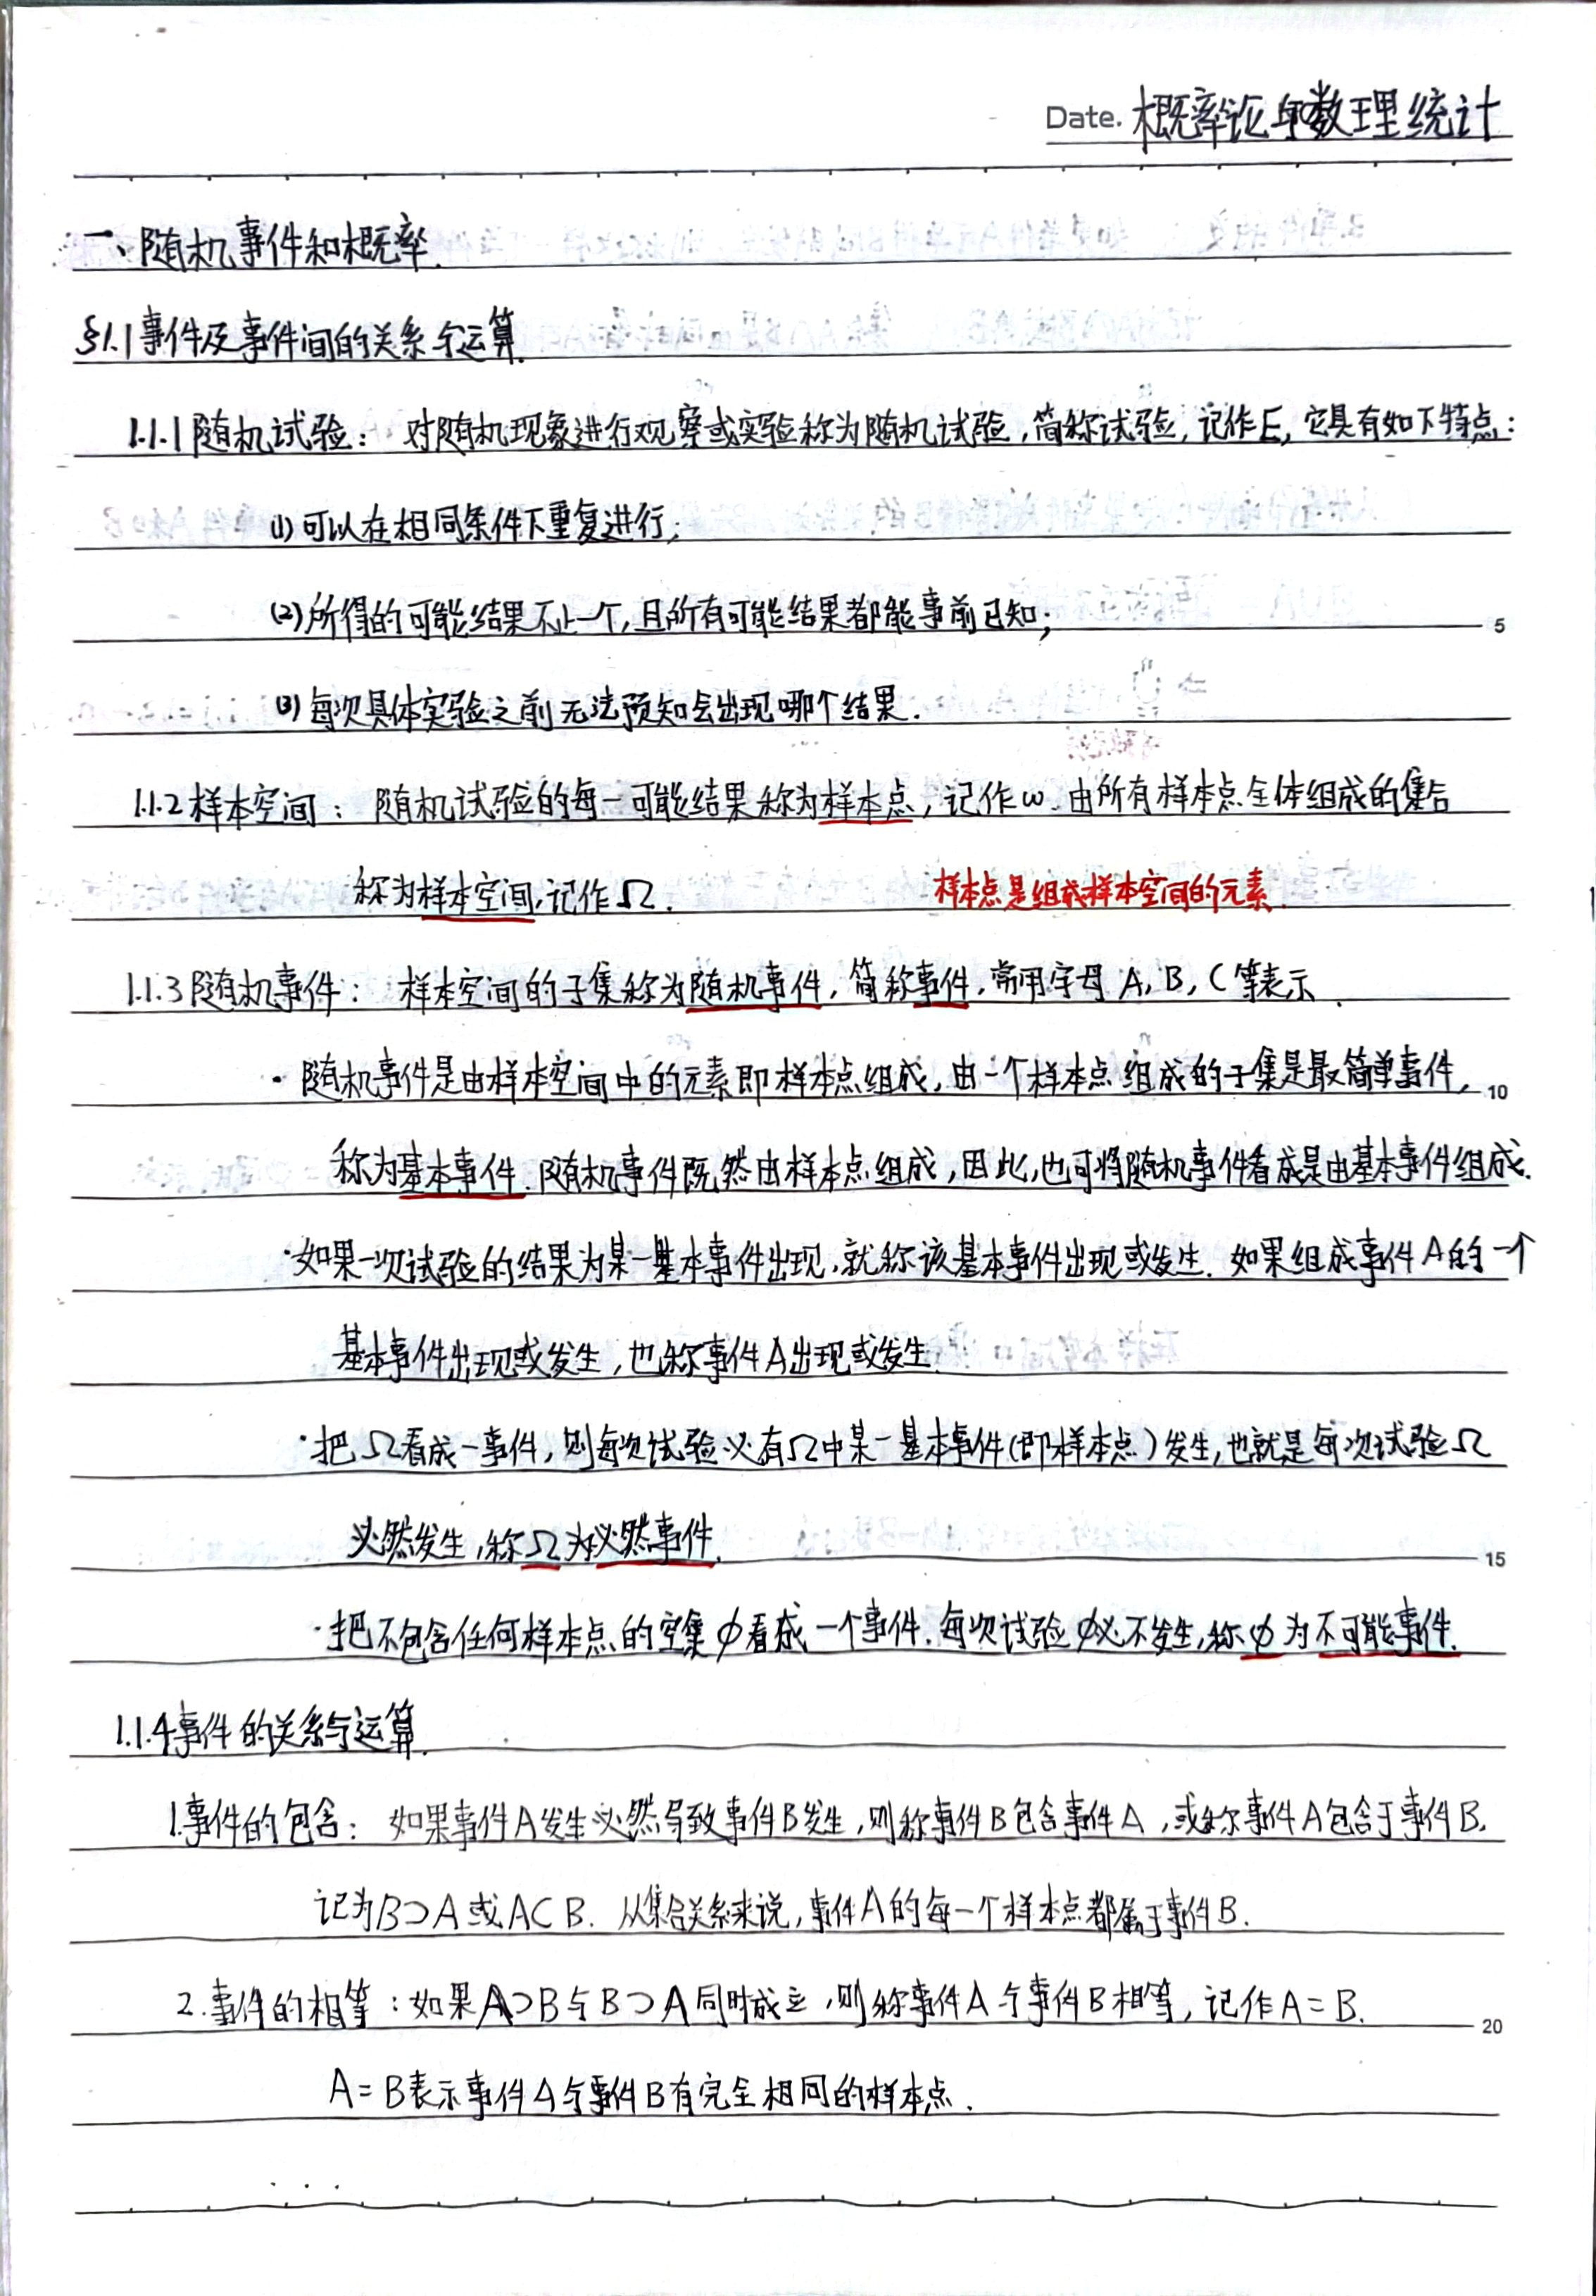 Date. 概率论与数理统计
一、随机事件和概率.
§1.1 事件及事件间的关系与运算.
1.1.1 随机试验: 对随机现象进行观察或实验称为随机试验,简称试验,记作E,它具有如下特点:
(1)可以在相同条件下重复进行;
(2)所得的可能结果不止一个,且所有可能结果都能事前已知;
5
(3)每次具体实验之前无法预知会出现哪个结果.
1.1.2 样本空间: 随机试验的每一可能结果称为样本点,记作ω.由所有样本点全体组成的集合
称为样本空间,记作Ω. 样本点是组成样本空间的元素.
1.1.3 随机事件: 样本空间的子集称为随机事件,简称事件,常用字母A,B,C等表示.
·随机事件是由样本空间中的元素即样本点组成,由一个样本点组成的子集是最简单事件,
10
称为基本事件.随机事件既然由样本点组成,因此,也可将随机事件看成是由基本事件组成.
·如果一次试验的结果为某一基本事件出现,就称该基本事件出现或发生.如果组成事件A的一个
基本事件出现或发生,也称事件A出现或发生.
·把Ω看成一事件,则每次试验必有Ω中某一基本事件(即样本点)发生,也就是每次试验Ω
必然发生,称Ω为必然事件.
15
·把不包含任何样本点的空集∅看成一个事件.每次试验∅必不发生,称∅为不可能事件.
1.1.4 事件的关系与运算.
1.事件的包含: 如果事件A发生必然导致事件B发生,则称事件B包含事件A,或称事件A包含于事件B.
记为B⊃A或A⊂B.从集合关系来说,事件A的每一个样本点都属于事件B.
2.事件的相等:如果A⊃B与B⊃A同时成立,则称事件A与事件B相等,记作A=B.
20
A=B表示事件A与事件B有完全相同的样本点.